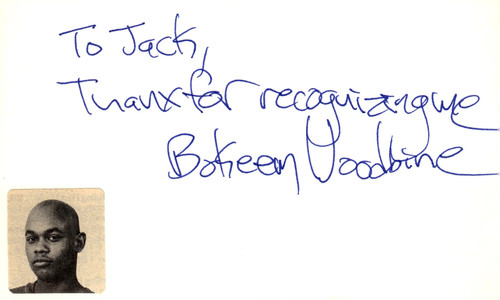 To Jack,
Thanx for recognizing me
Bokeem Woodbine